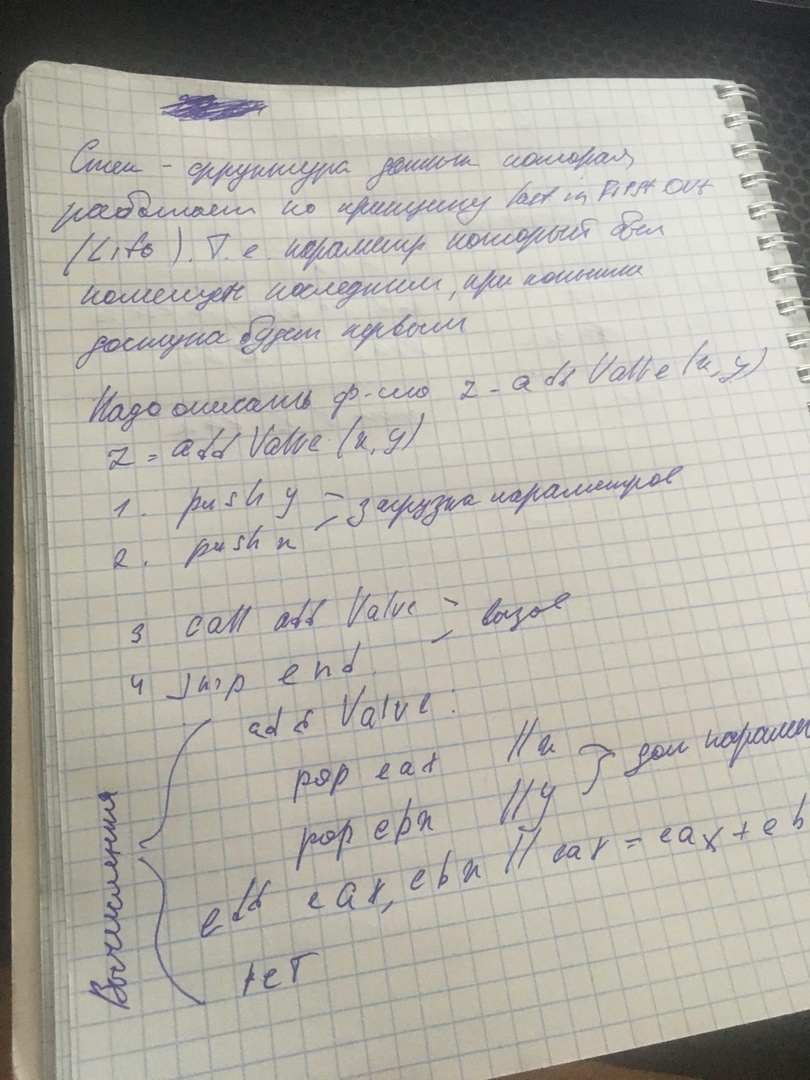 Стек - структура данных которая
работает по принципу last in First Out
(Lifo). Т.е. параметр который был
помещен последним, при попытке
доступа будет первым
Надо описать ф-цию z = addValue(x,y)
z = addValue(x,y)
1. push y
2. push x
загрузка параметров
3 call addValue
4 jmp end
вызов
addValue:
pop eax //x
pop ebx //y
доп парамет
add eax, ebx // eax = eax + eb
ret
Вычисления